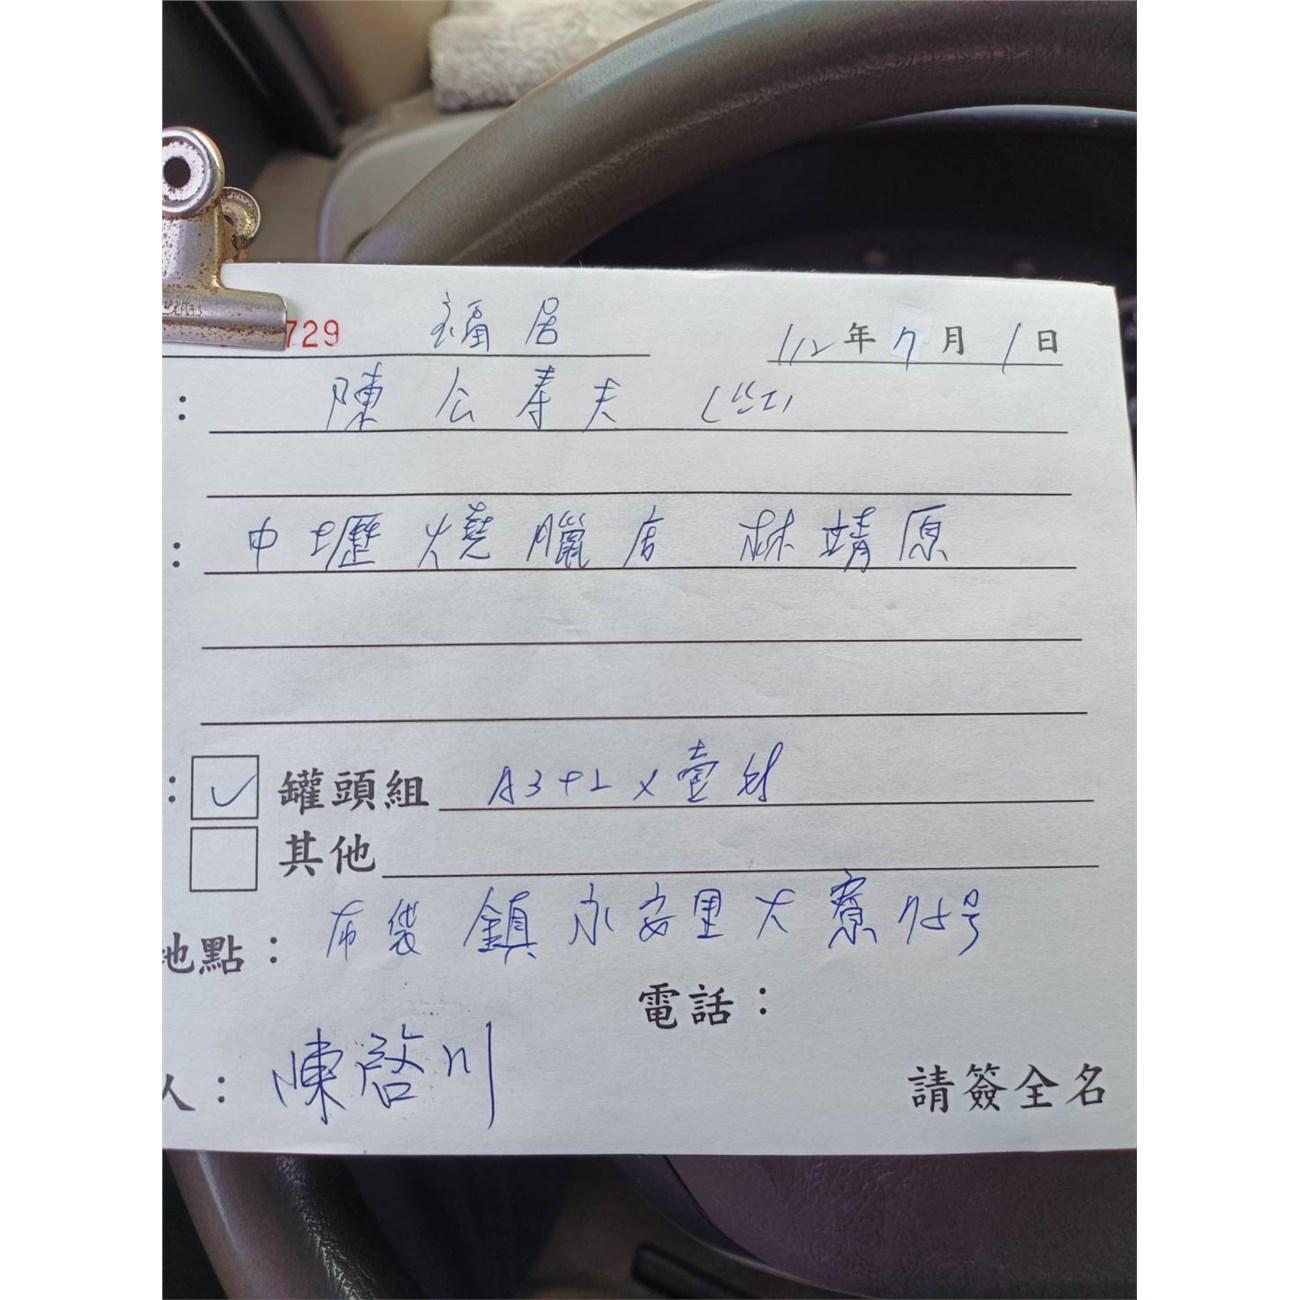 729 福居 112年7月1日
： 陳公壽夫
： 中壢燒臘店 林靖原
： ✓ 罐頭組 A3+2 x 壹對
其他
地點： 布袋鎮永安里大寮75号
電話：
人： 陳啓川
請簽全名